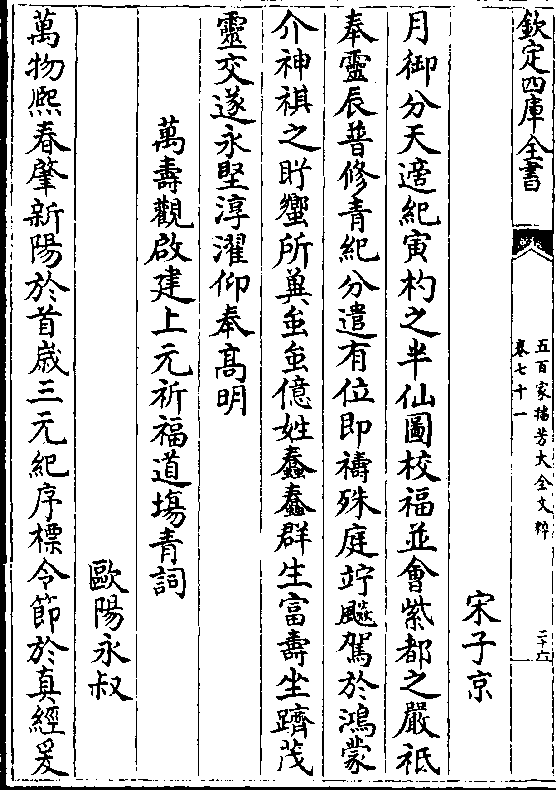 欽定四庫全書
五百家播芳大全文粹
卷七十一
二十六
宋子京
月御分天適紀寅杓之半仙圖校福並會紫都之嚴祗
奉靈辰普修青紀分遣有位即禱殊庭竚飈駕於鴻蒙
介神祺之肸蠁所冀㞷㞷億姓蠢蠢群生富壽坐躋茂
靈交遂永堅淳濯仰奉髙明
萬壽觀啟建上元祈福道塲青詞
歐陽永叔
萬物熙春肇新陽於首歳三元紀序標令節於真經爰